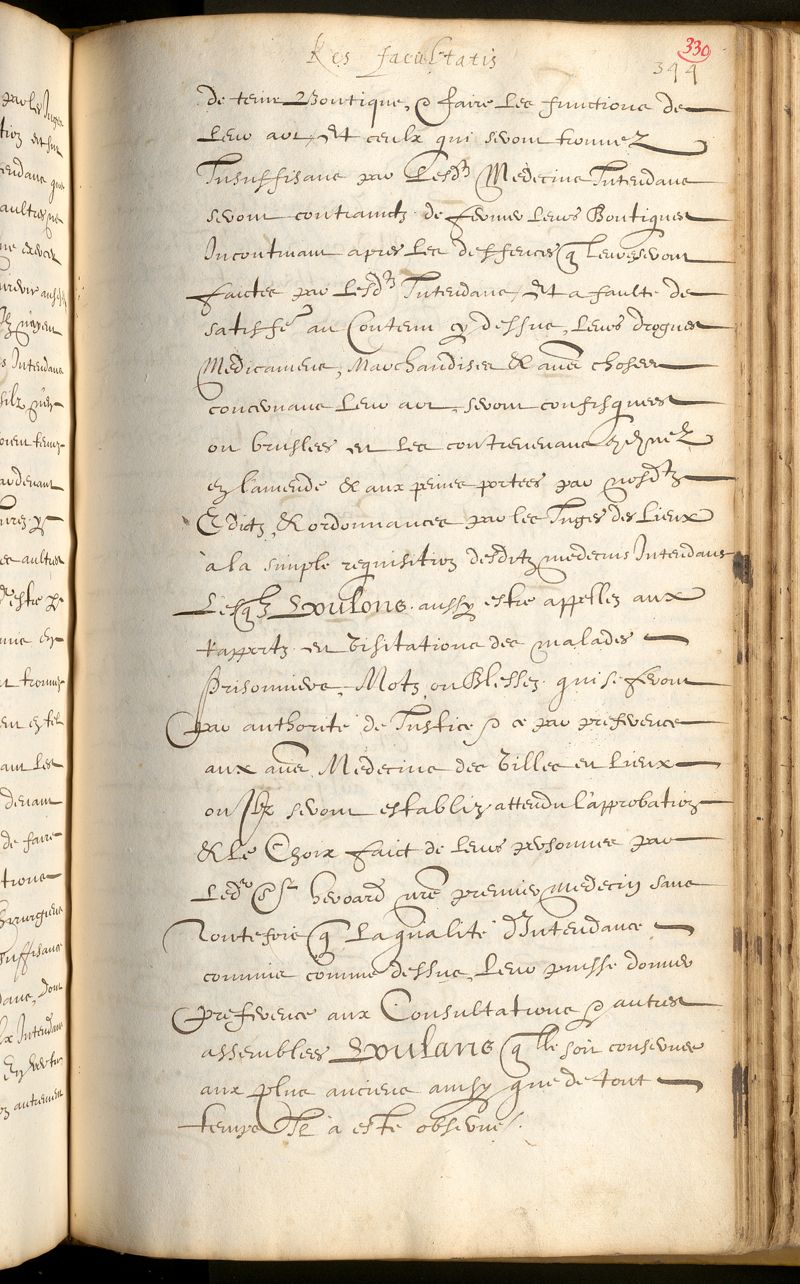 Res facultatis
330
344
de tenir Boutique, & faire les functions de
Leur art, Et ceulx qui seront trouvez
Insuffisans par Lesd. Medecins Intendans
seront contrainctz de fermer Leurs Boutiques
Incontinant apres les deffences q leur seront
faictes par Lesd. Intendans, Et a faulte de
satisfe. au Contenu cy dessus, Leurs drogues
Medicamens, Marchandises & autes choses
concernans Leur art, seront confisquees
ou bruslees et les contrevenans
en l'amende & aux peines portees par nosd.
Edictz & ordonnances par les Juges des Lieux
à la simple requisition desditz medecins Intendans
Lesqlz Voulons aussy estre appellez aux
Rapportz et Visitations des malades
Prisonniers, Mortz ou Blessez qui se feront
par authorité de Justice & ce par preference
aux aues Medecins des Villes et Lieux
ou Ilz seront establiz attendu l'approbation
& le Choix faict de leurs personnes par
Led. Sr. heroard nre premier medecin sans
Toutefois q La qualité d'Intendance
commise comme dessus, Leur puisse donner
preference aux Consultations & autres
assemblees Voulans qlle soit conservee
aux plus anciens ainsy que de tout
temps Il à esté observé.
par les Juges
Intendans
trouver
aut Les
de faire
Chirurgiens
suffisans
dans, Dont
Intendans
En vertu
autrement